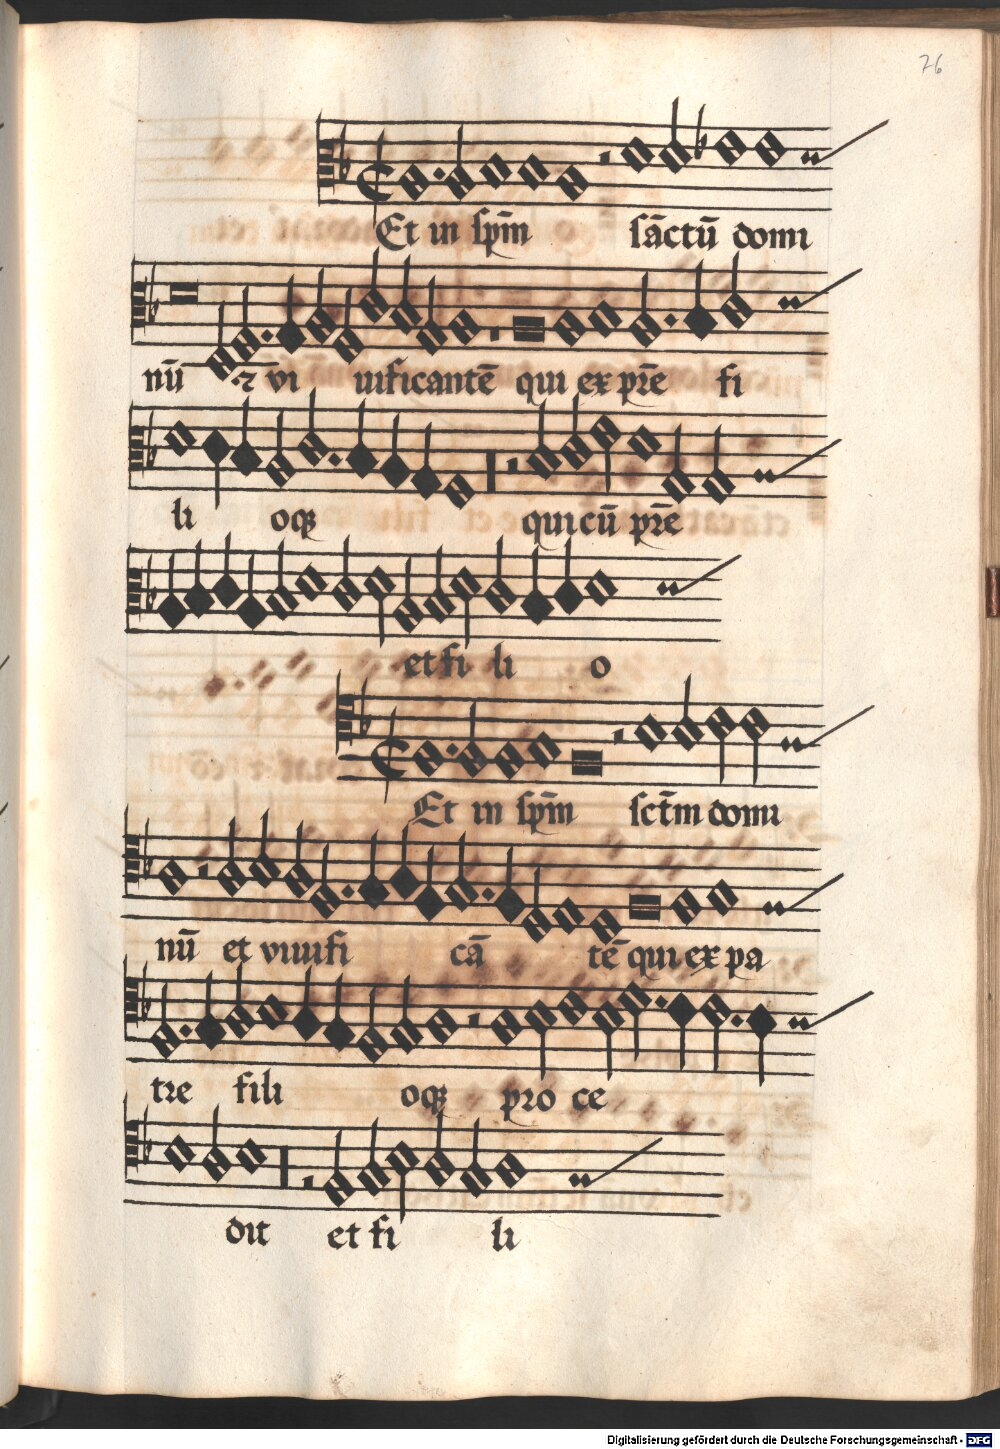 76
Et in sp̄m sāctū domi
nū ⁊ vi uificantē qui ex pr̄e fi
li oqꝫ qui cū pr̄e
et fi li o
Et in sp̄m sct̄m domi
nū et viuifi cā tē qui ex pa
tre fili oqꝫ pro ce
dit et fi li
Digitalisierung gefördert durch die Deutsche Forschungsgemeinschaft - DFG